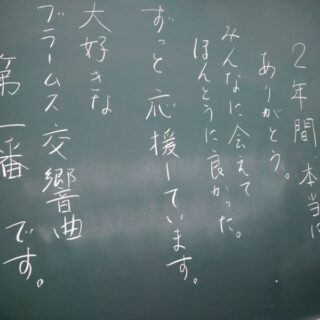 2年間本当に
ありがとう。
みんなに会えて
ほんとうに良かった。
ずっと応援しています。
大好きな
ブラームス交響曲
第一番です。